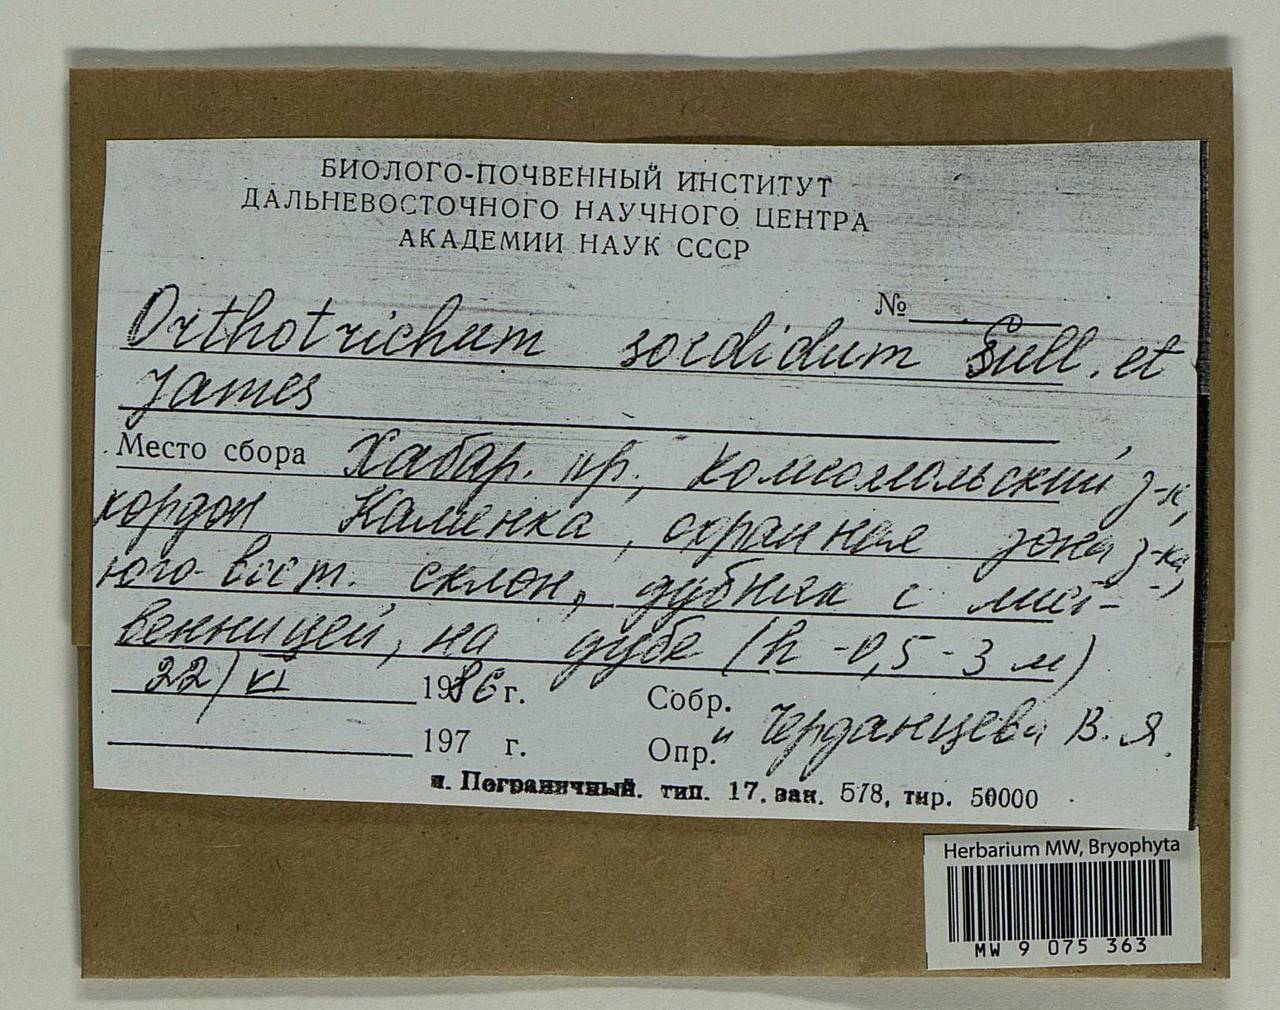 БИОЛОГО-ПОЧВЕННЫЙ ИНСТИТУТ
ДАЛЬНЕВОСТОЧНОГО НАУЧНОГО ЦЕНТРА
АКАДЕМИИ НАУК СССР
№
Orthotrichum sordidum Sull. et
James
Место сбора Хабар. кр., Комсомольский з-к,
кордон Каменка, охранная зона з-ка,
юго-вост. склон, дубняк с лист-
венницей, на дубе (h -0,5-3 м)
22/VI 1986 г. Собр.
и Черданцева В. Я.
197 г. Опр.
п. Пограничный. тип. 17. зак. 578, тир. 50000
Herbarium MW, Bryophyta
MW 9 075 363